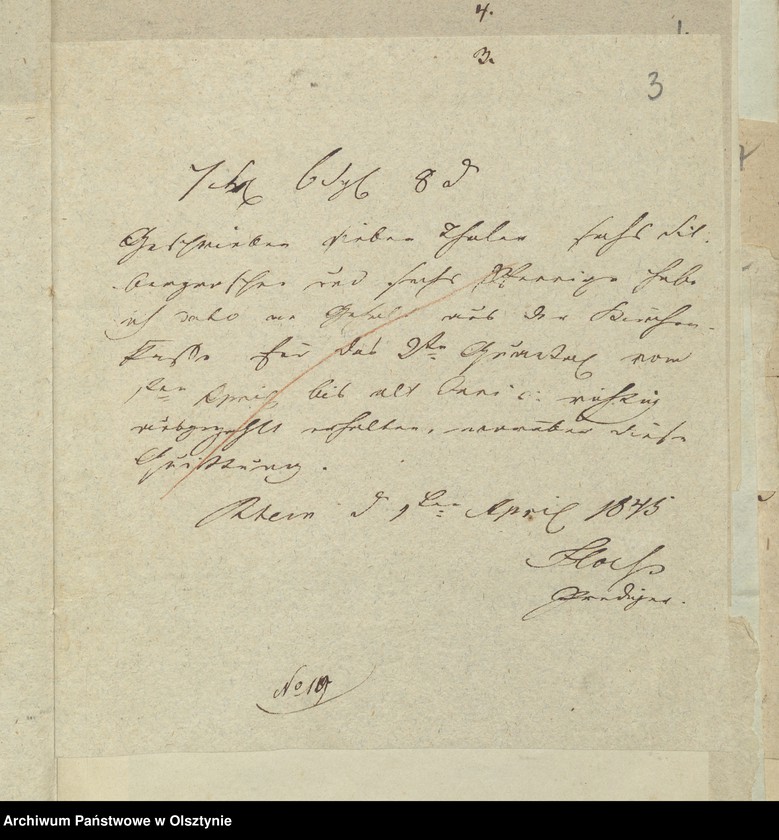 4.
1.
3.
3
7 rtl 6 Sgl 8 d
Geschrieben sieben Thaler sechs Sil-
bergroschen und sechs Pfennige habe
ich dato an Gehalt aus der Kirchen-
Kasse für das 2te Quartal vom
1ten April bis ult Juni c: richtig
ausgezahlt erhalten, worüber diese
Quittung.
Rhein d 1ten April 1845
Prediger.
No 19
Archiwum Państwowe w Olsztynie